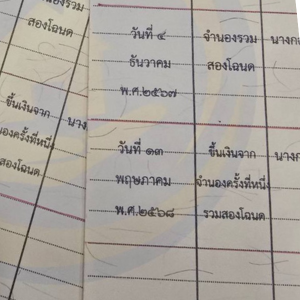 จำนองรวม
สองโฉนด
ขึ้นเงินจาก
นองครั้งที่หนึ่ง
สองโฉนด
วันที่ ๔ จำนองรวม
ธันวาคม สองโฉนด
พ.ศ.๒๕๖๗
วันที่ ๑๓ ขึ้นเงินจาก
พฤษภาคม จำนองครั้งที่หนึ่ง
พ.ศ.๒๕๖๘ รวมสองโฉนด